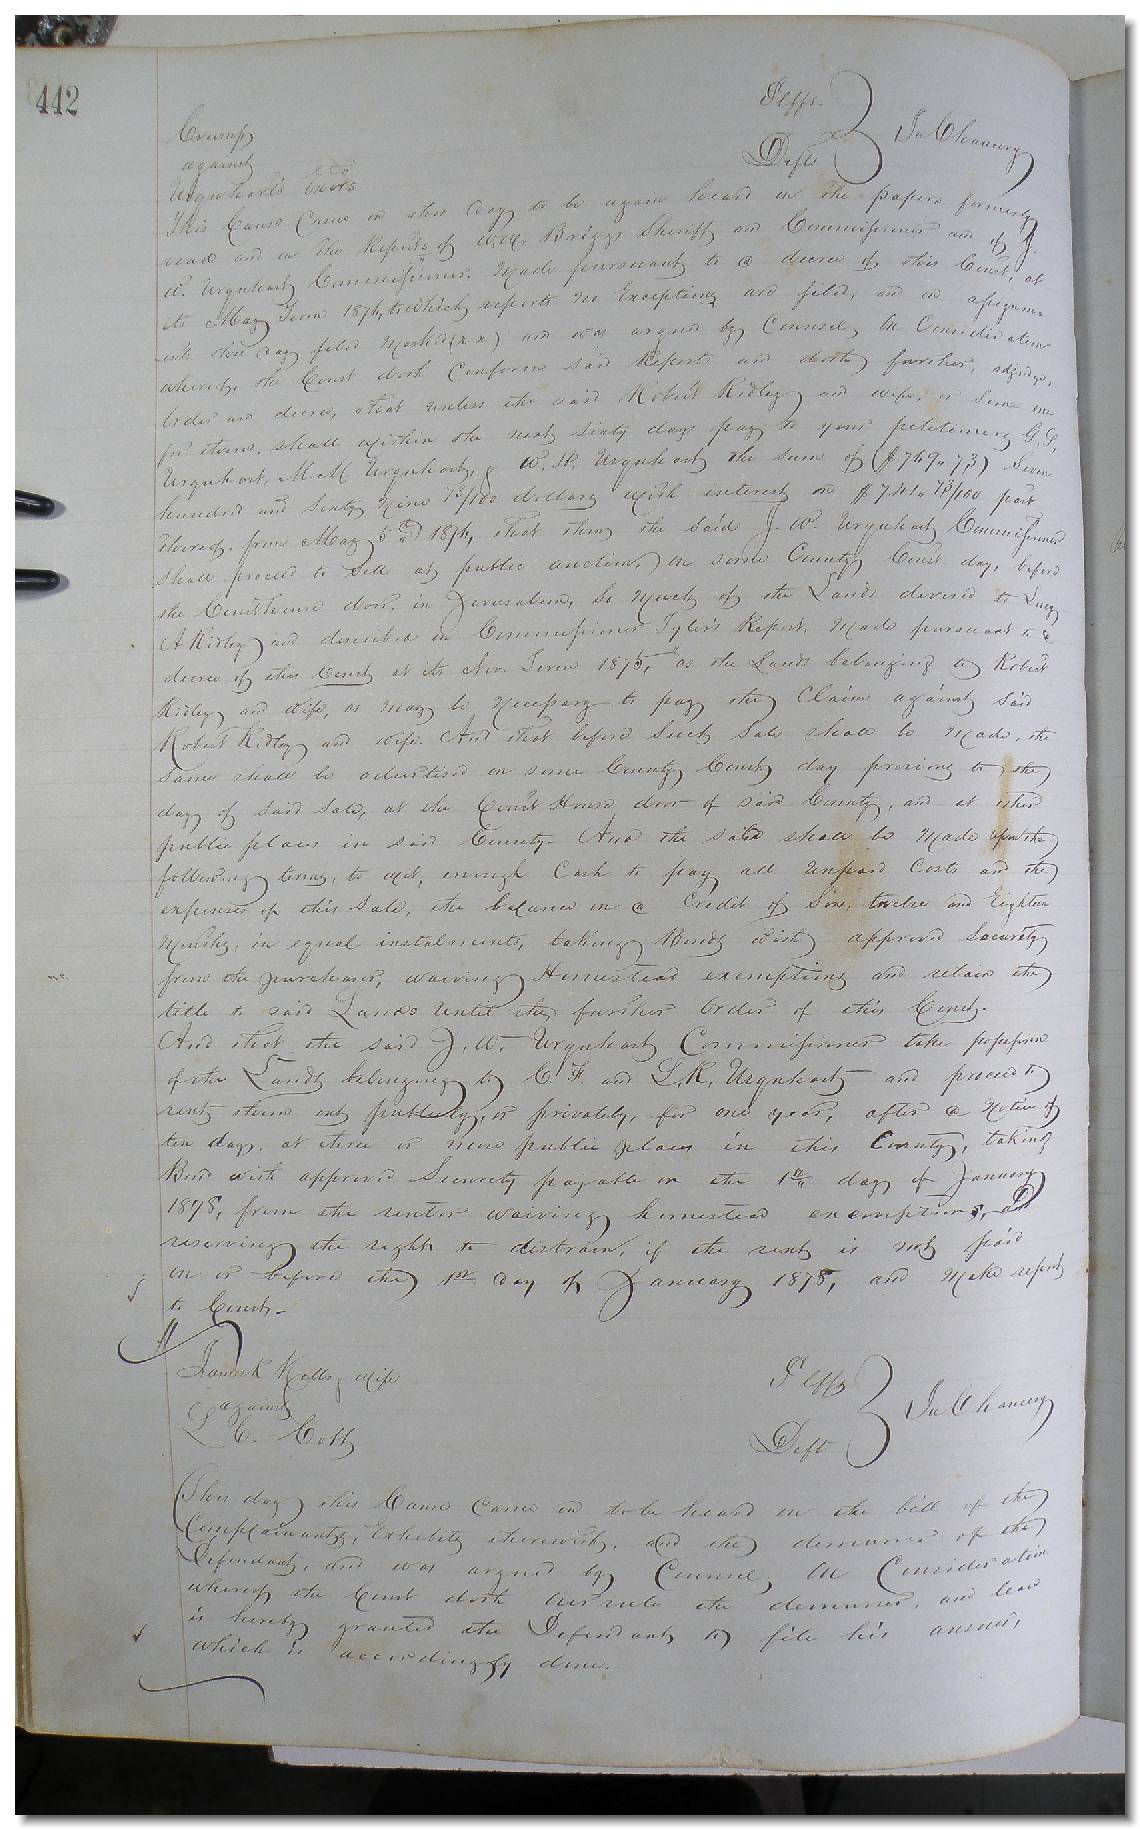 442
Crump Plffs.
against In Chancery
Urquhart's Exors Defts
This Cause Came on this day to be again heard on the papers formerly
read and on the Reports of W.W. Briggs Sheriff and Commissioner and of J.
W. Urquhart Commissioner, Made pursuant to a decree of this Court, at
its May Term 1876, to which reports no Exceptions are filed, and on
this day filed Marked (xx) and was argued by Counsel, On Consideration
whereof, the Court doth Confirm said Reports and doth further, adjudge,
Order and decree, that unless the said Robert Ridley and wife, or some one
for them, shall within the next sixty days pay to your petitioners, G.G.
Urquhart, M.M Urquhart, & W.H. Urquhart the sum of ($769.73) Seven
hundred and Sixty Nine 73/100 dollars with interest on $741.73/100 part
thereof, from May 5th 1876, that then, the said J. W. Urquhart Commissioner
shall proceed to sell at public auction, On some County Court day, before
the Courthouse door, in Jerusalem, So Much of the Lands devised to Lucy
A Ridley and described in Commissioner Tyler's Report, Made pursuant to a
decree of this Court at its Nov. Term 1875, as the Lands belonging to Robert
Ridley and wife, as may be Necessary to pay the Claim against said
Robert Ridley and wife. And that before such Sale shall be Made, the
same shall be advertised on some County Court day previous to the
day of said Sale, at the Court House door of said County, and at other
public places in said County. And the sale shall be Made upon the
following terms, to wit, enough Cash to pay all Unpaid Costs and the
expenses of this Sale, the balance on a Credit of Six, twelve and Eighteen
Months, in equal instalments, taking Bonds with approved Security
from the purchaser, waiving Homestead exemptions and retain the
title to said Lands Until the further Order of this Court.
And that the said J. W. Urquhart Commissioner take possession
of the Lands belonging to C. F. and L.R. Urquhart and proceed to
rent them out publicly, or privately, for one year, after a Notice of
ten days, at three or more public places in this County, taking
Bond with approved Security payable on the 1st day of January
1878, from the renter waiving homestead exemptions, and
reserving the right to distrain, if the rent is not paid
on or before the 1st day of January 1878, and Make report
to Court.
James K Kello & wife Plffs
against In Chancery
L C. Cobb Deft
This day this Cause Came on to be heard on the bill of the
Complainants, Exhibits therewith, and the demurrer of the
Defendant, and was argued by Counsel, On Consideration
whereof the Court doth overrule the demurrer, and leave
is hereby granted the Defendant to file his answer,
which is accordingly done.